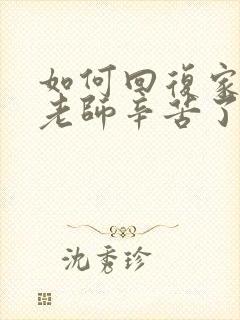 如何回復家
老師辛苦了
沈秀珍